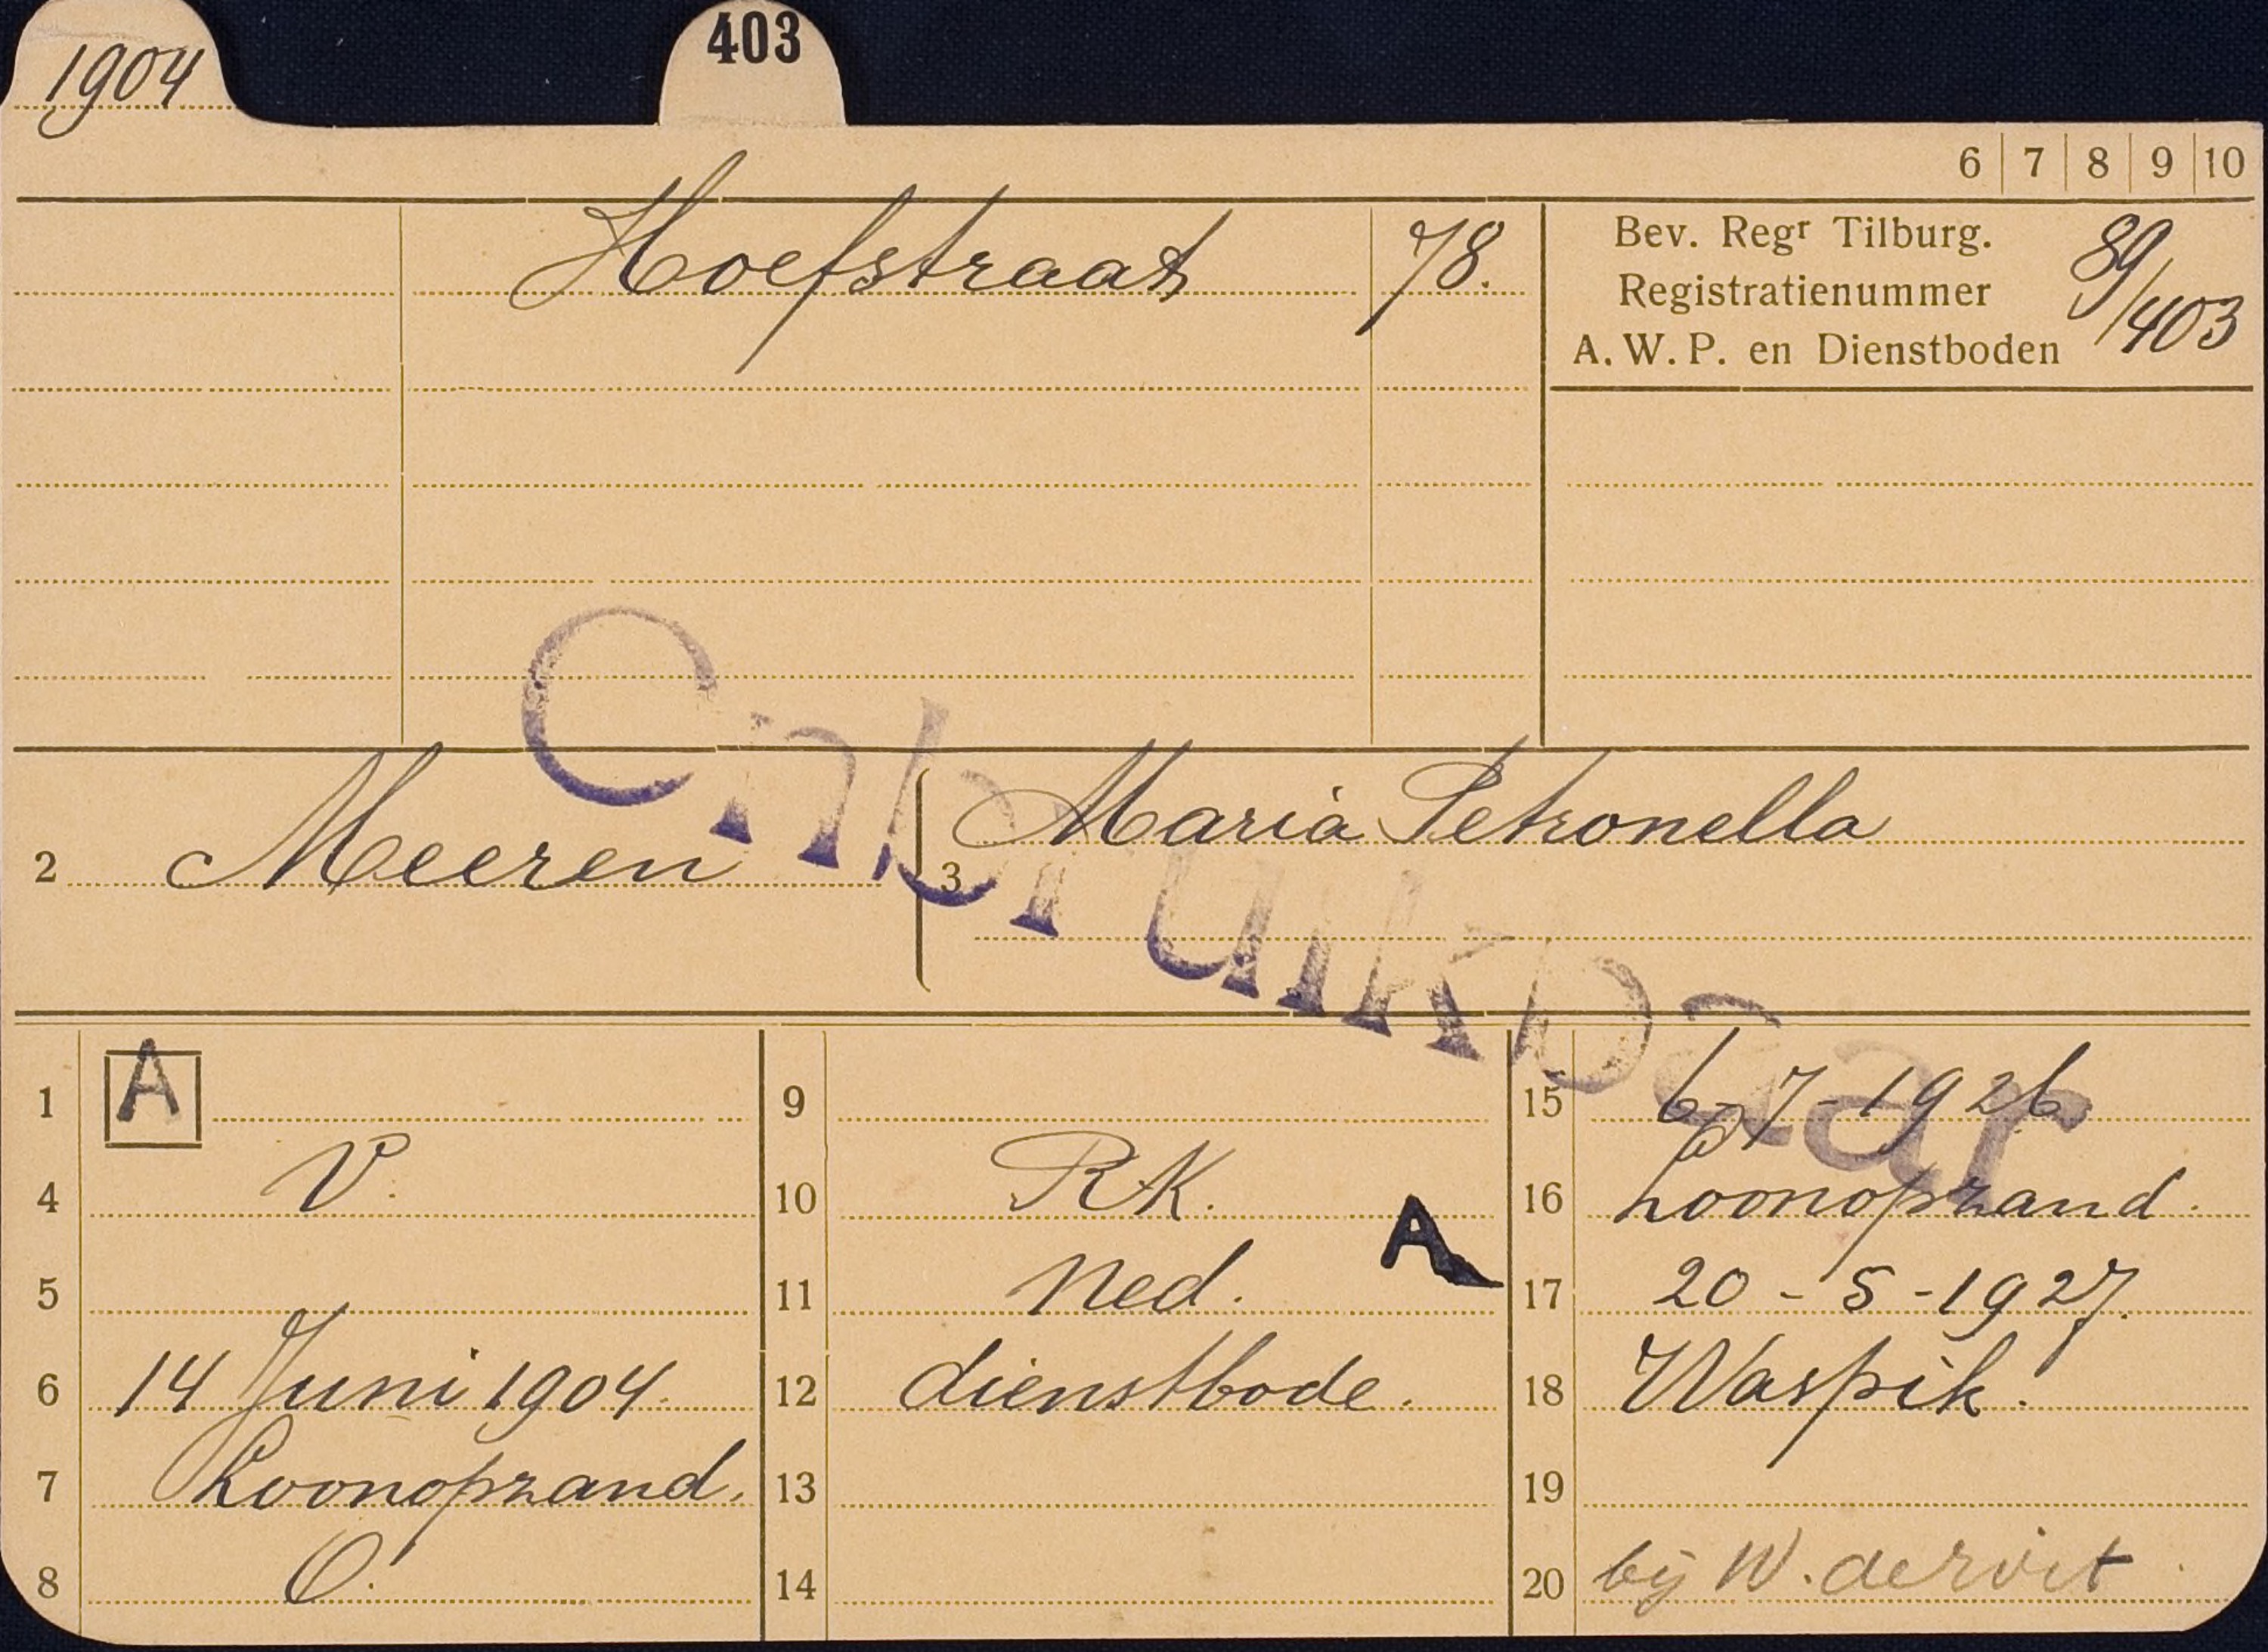 1904
403
6 7 8 9 10
Hoefstraat 78.
Bev. Regr Tilburg.
Registratienummer
A. W. P. en Dienstboden
89/403
Onbruikbaar
2 Meeren
3 Maria Petronella
1 A
4 V.
5
6 14 Juni 1904.
7 Loonopzand.
8 O.
9
10 RK.
A
11 Ned.
12 dienstbode.
13
14
15 6-7-1926
16 Loonopzand.
17 20-5-1927.
18 Waspik.
19
20 bij W. de